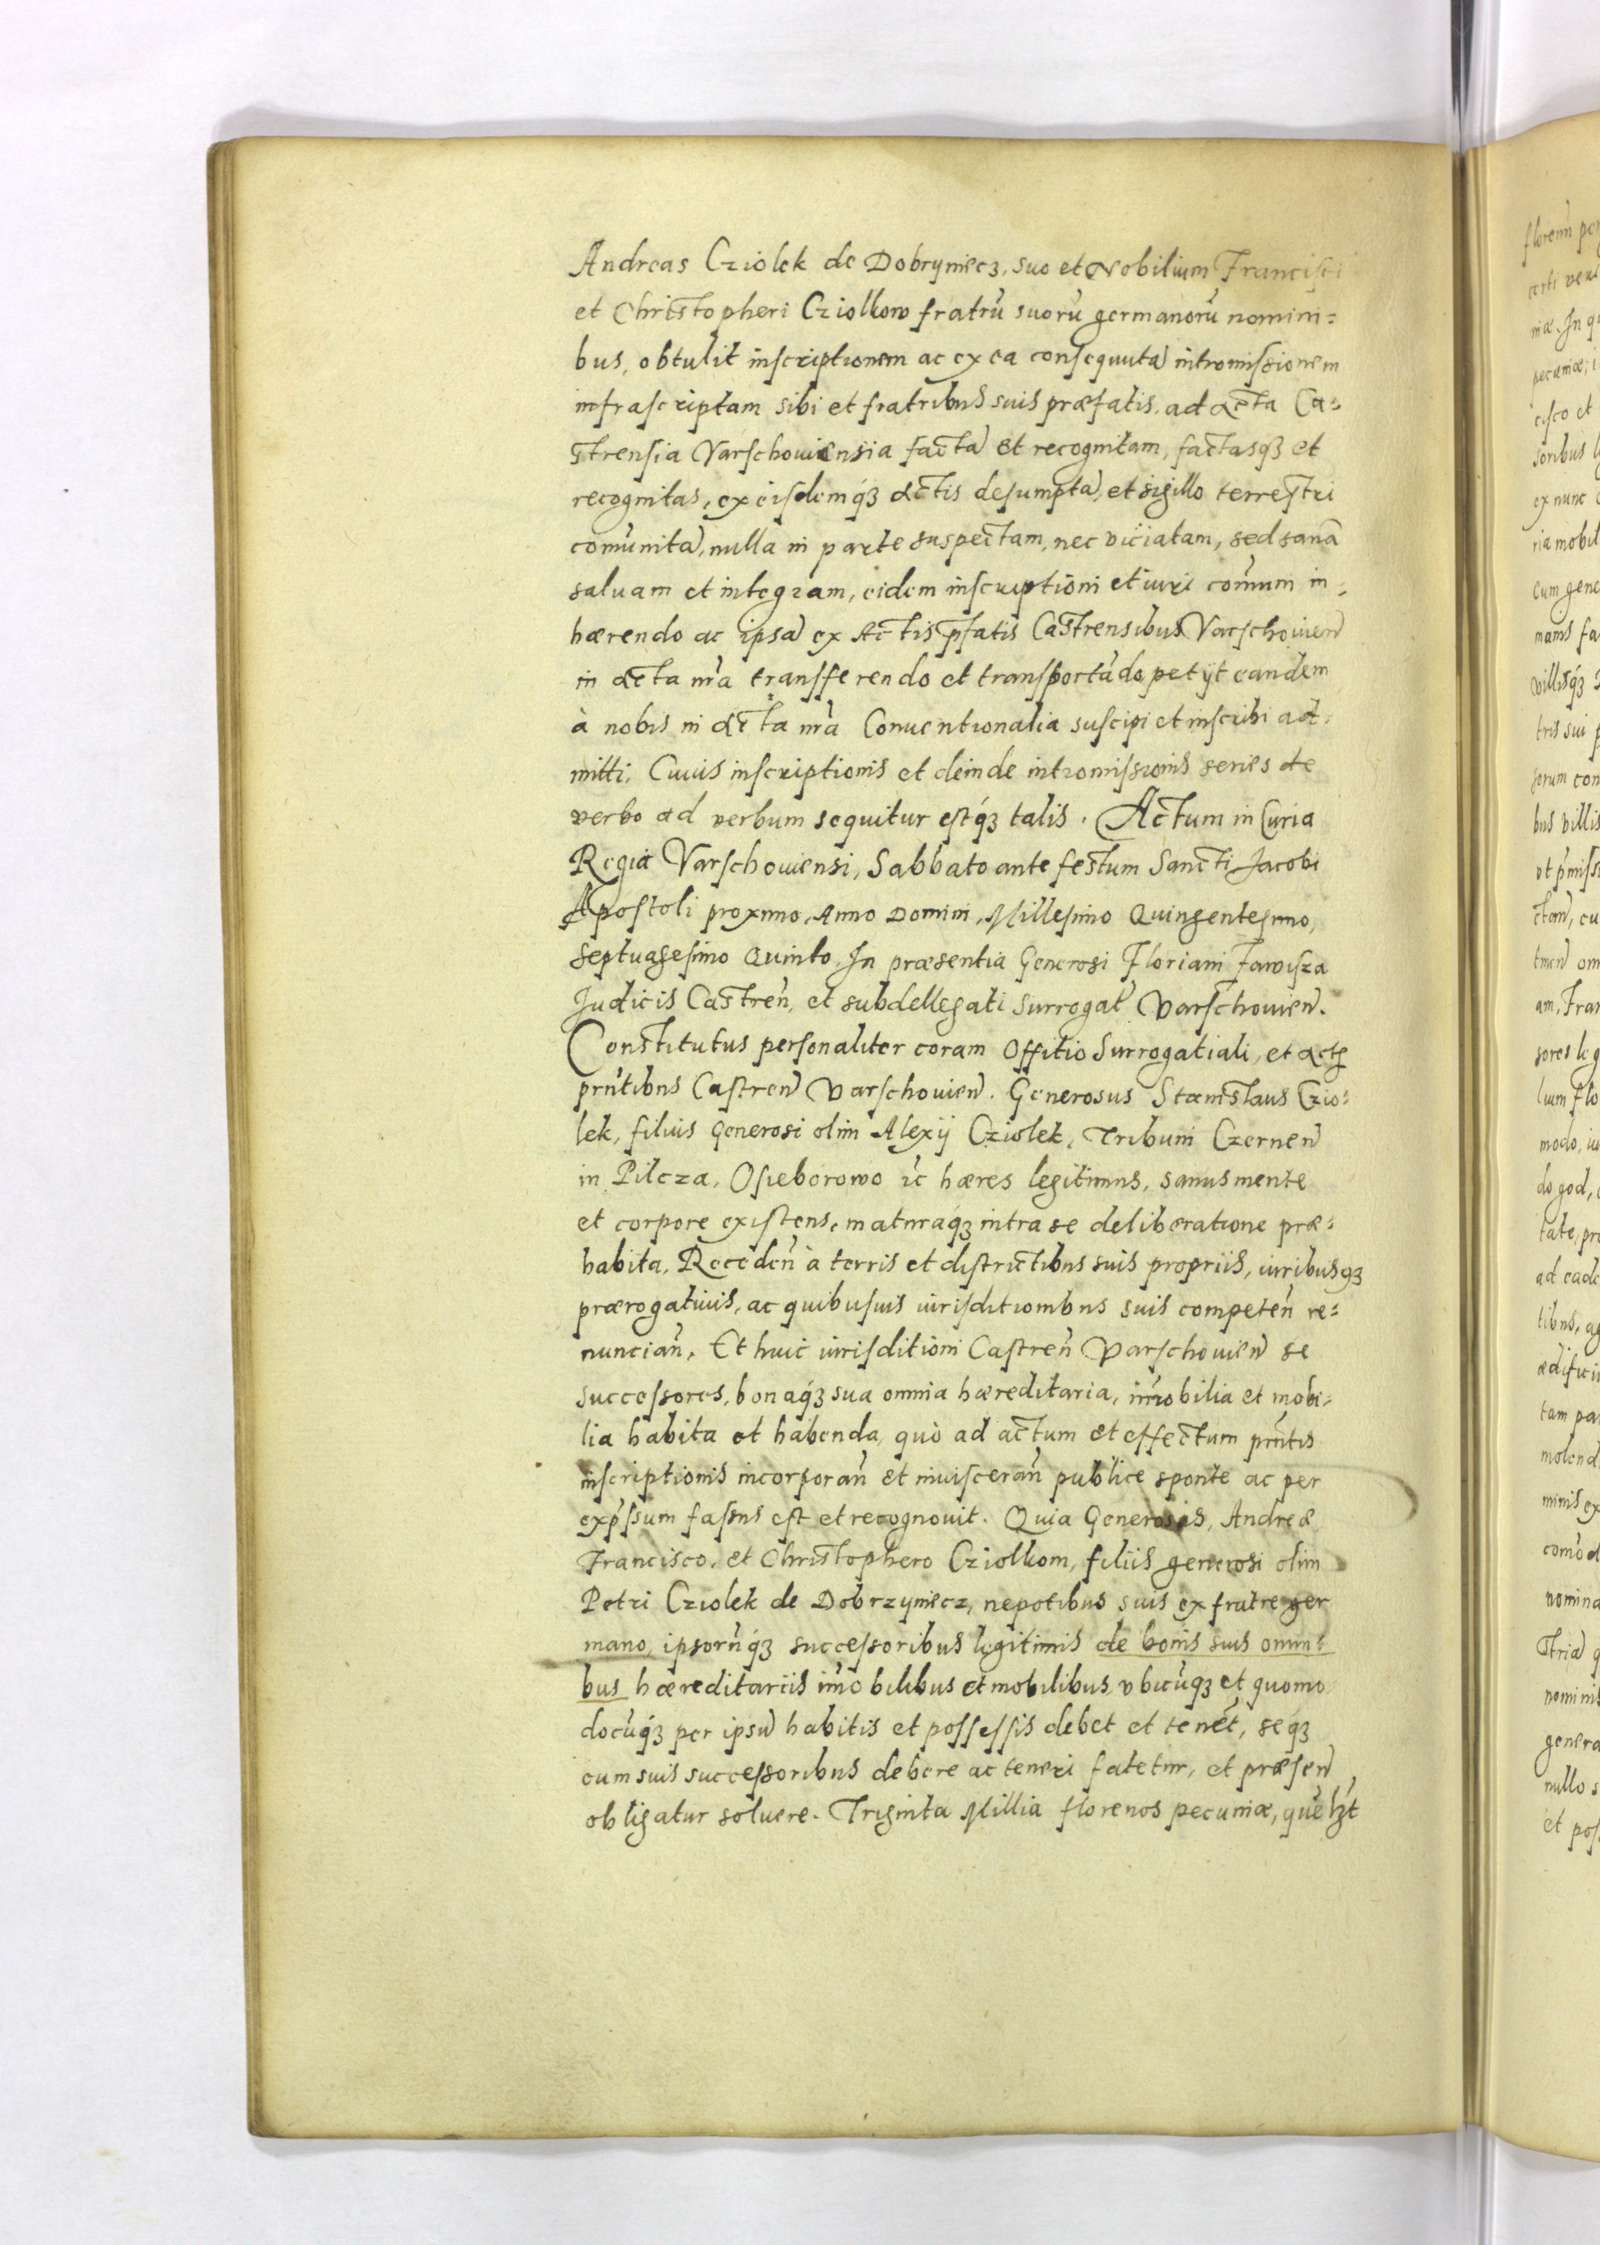 Andreas Cziolek de Dobrymecz, suo et Nobilium Francisci
et Christopheri Cziolkow fratrũ suorũ germanorũ nomini=
bus, obtulit inscriptionem ac ex ea consequuta intromissionem
infrascriptam sibi et fratribus suis præfatis, ad acta Ca=
strensia Varschouiensia facta et recognitam, factasq́ꝫ et
recognitas, ex eisdemq́ꝫ actis desumpta, et sigillo terrestri
com̃unita, nulla in parte suspectam, nec viciatam, sed sanã
saluam et integram, eidem inscriptioni et iuri com̃um in=
hærendo ac ipsã ex Actis p̃fatis Castrensibus Varschouien̄
in acta nr̃a transfferendo et transportãdo petijt eandem
à nobis in acta nr̃a Conuentionalia suscipi et inscribi ad=
mitti, Cuius inscriptionis et deinde intromissionis series de
verbo ad verbum sequitur estq́ꝫ talis. Actum in Curia
Regia Varschouiensi, Sabbato ante festum Sancti Jacobi
Apostoli proximo, Anno Domini, Millesimo Quingentesimo,
Septuagesimo Quinto, In præsentia Generosi Floriani Parvisza
Judicis Castren̄, et subdellegati Surrogat̃ Varschouien̄.
Constitutus personaliter coram Offitio Surrogatiali, et actꝭ
prñtibus Castren̄ Varschouien̄. Generosus Stanislaus Czio=
lek, filius Generosi olim Alexij Cziolek, Tribuni Czernen̄
in Pilcza, Osieborowo ꝛc̃ hæres legitimus, sanus mente
et corpore existens, maturaq́ꝫ intra se deliberatione præ=
habita, Receden̄ à terris et districtibus suis propriis, iuribusqꝫ
prærogatiuis, ac quibusuis iurisditionibus suis competen̄ re=
nuncian̄, Et huic iurisditioni Castren̄ Varschouien̄ se
successores, bonaq́ꝫ sua omnia hæreditaria, im̃obilia et mobi=
lia habita et habenda, quò ad actum et effectum prñtis
inscriptionis incorporan̄ et inuisceran̄ publice sponte ac per
exp̃ssum fassus est et recognouit. Quia Generosis, Andreæ
Francisco, et Christophero Cziolkom, filiis generosi olim
Petri Cziolek de Dobrzymecz, nepotibus suis ex fratre ger
mano, ipsorũq́ꝫ successoribus legitimis de bonis suis omni=
bus hæreditariis im̃obilibus et mobilibus vbicũqꝫ et quomo
docũq́ꝫ per ipsũ habitis et possessis debet et tenet̃, seq́ꝫ
cum suis successoribus debere ac teneri fatetur, et præsen̄
obligatur soluere. Triginta Millia florenos pecuniæ, quẽlꝫt